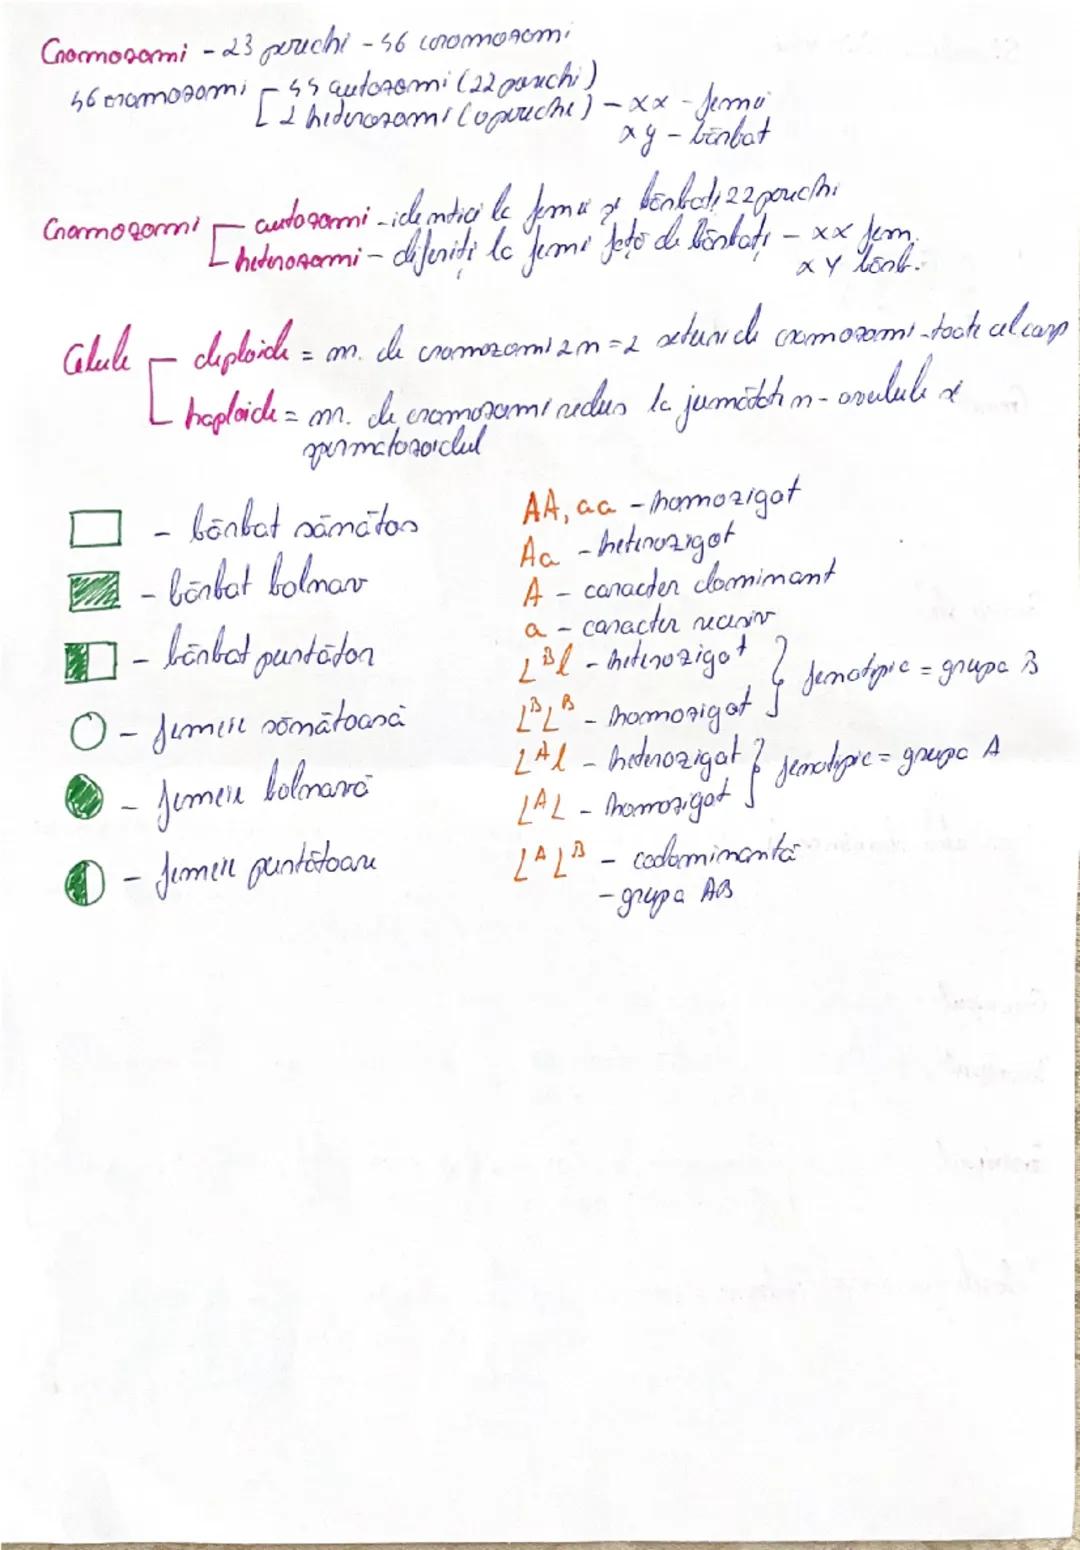 Cromozomi - 23 perechi - 46 cromozomi
46 cromozomi - 44 autozomi (22 perechi)
2 heterozomi (o pereche) - xx - femei
xy - bărbat
Cromozomi - autozomi - identici la femei și bărbați 22 perechi
heterozomi - diferiți la femei față de bărbați - xx fem.
x Y bărb.
Celule - diploide = nr. de cromozomi 2n = 2 seturi de cromozomi - toate cel corp
haploide = nr. de cromozomi redus la jumătate n - ovulele și
spermatozoidul
- bărbat sănătos
- bărbat bolnav
- bărbat purtător
- femeie sănătoasă
- femeie bolnavă
- femeie purtătoare
AA, aa - homozigot
Aa - heterozigot
A - caracter dominant
a - caracter recesiv
L^B l - heterozigot } fenotipic = grupa B
L^B L^B - homozigot
L^A l - heterozigot } fenotipic = grupa A
L^A L - homozigot
L^A L^B - codominanță
- grupa AB